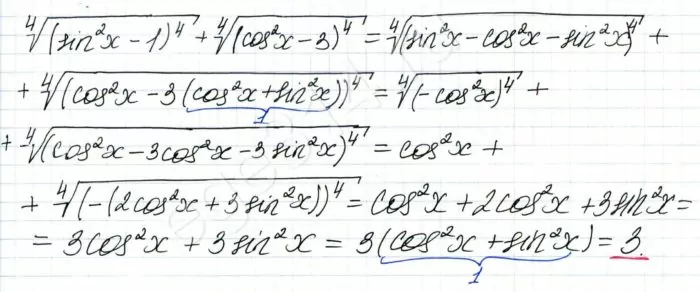 ⁴√(sin²x - 1)⁴ + ⁴√(cos²x - 3)⁴ = ⁴√(sin²x - cos²x - sin²x)⁴ +
+ ⁴√(cos²x - 3(cos²x + sin²x))⁴ = ⁴√(-cos²x)⁴ +
1
+ ⁴√(cos²x - 3cos²x - 3sin²x)⁴ = cos²x +
+ ⁴√(-(2cos²x + 3sin²x))⁴ = cos²x + 2cos²x + 3sin²x =
= 3cos²x + 3sin²x = 3(cos²x + sin²x) = 3.
1